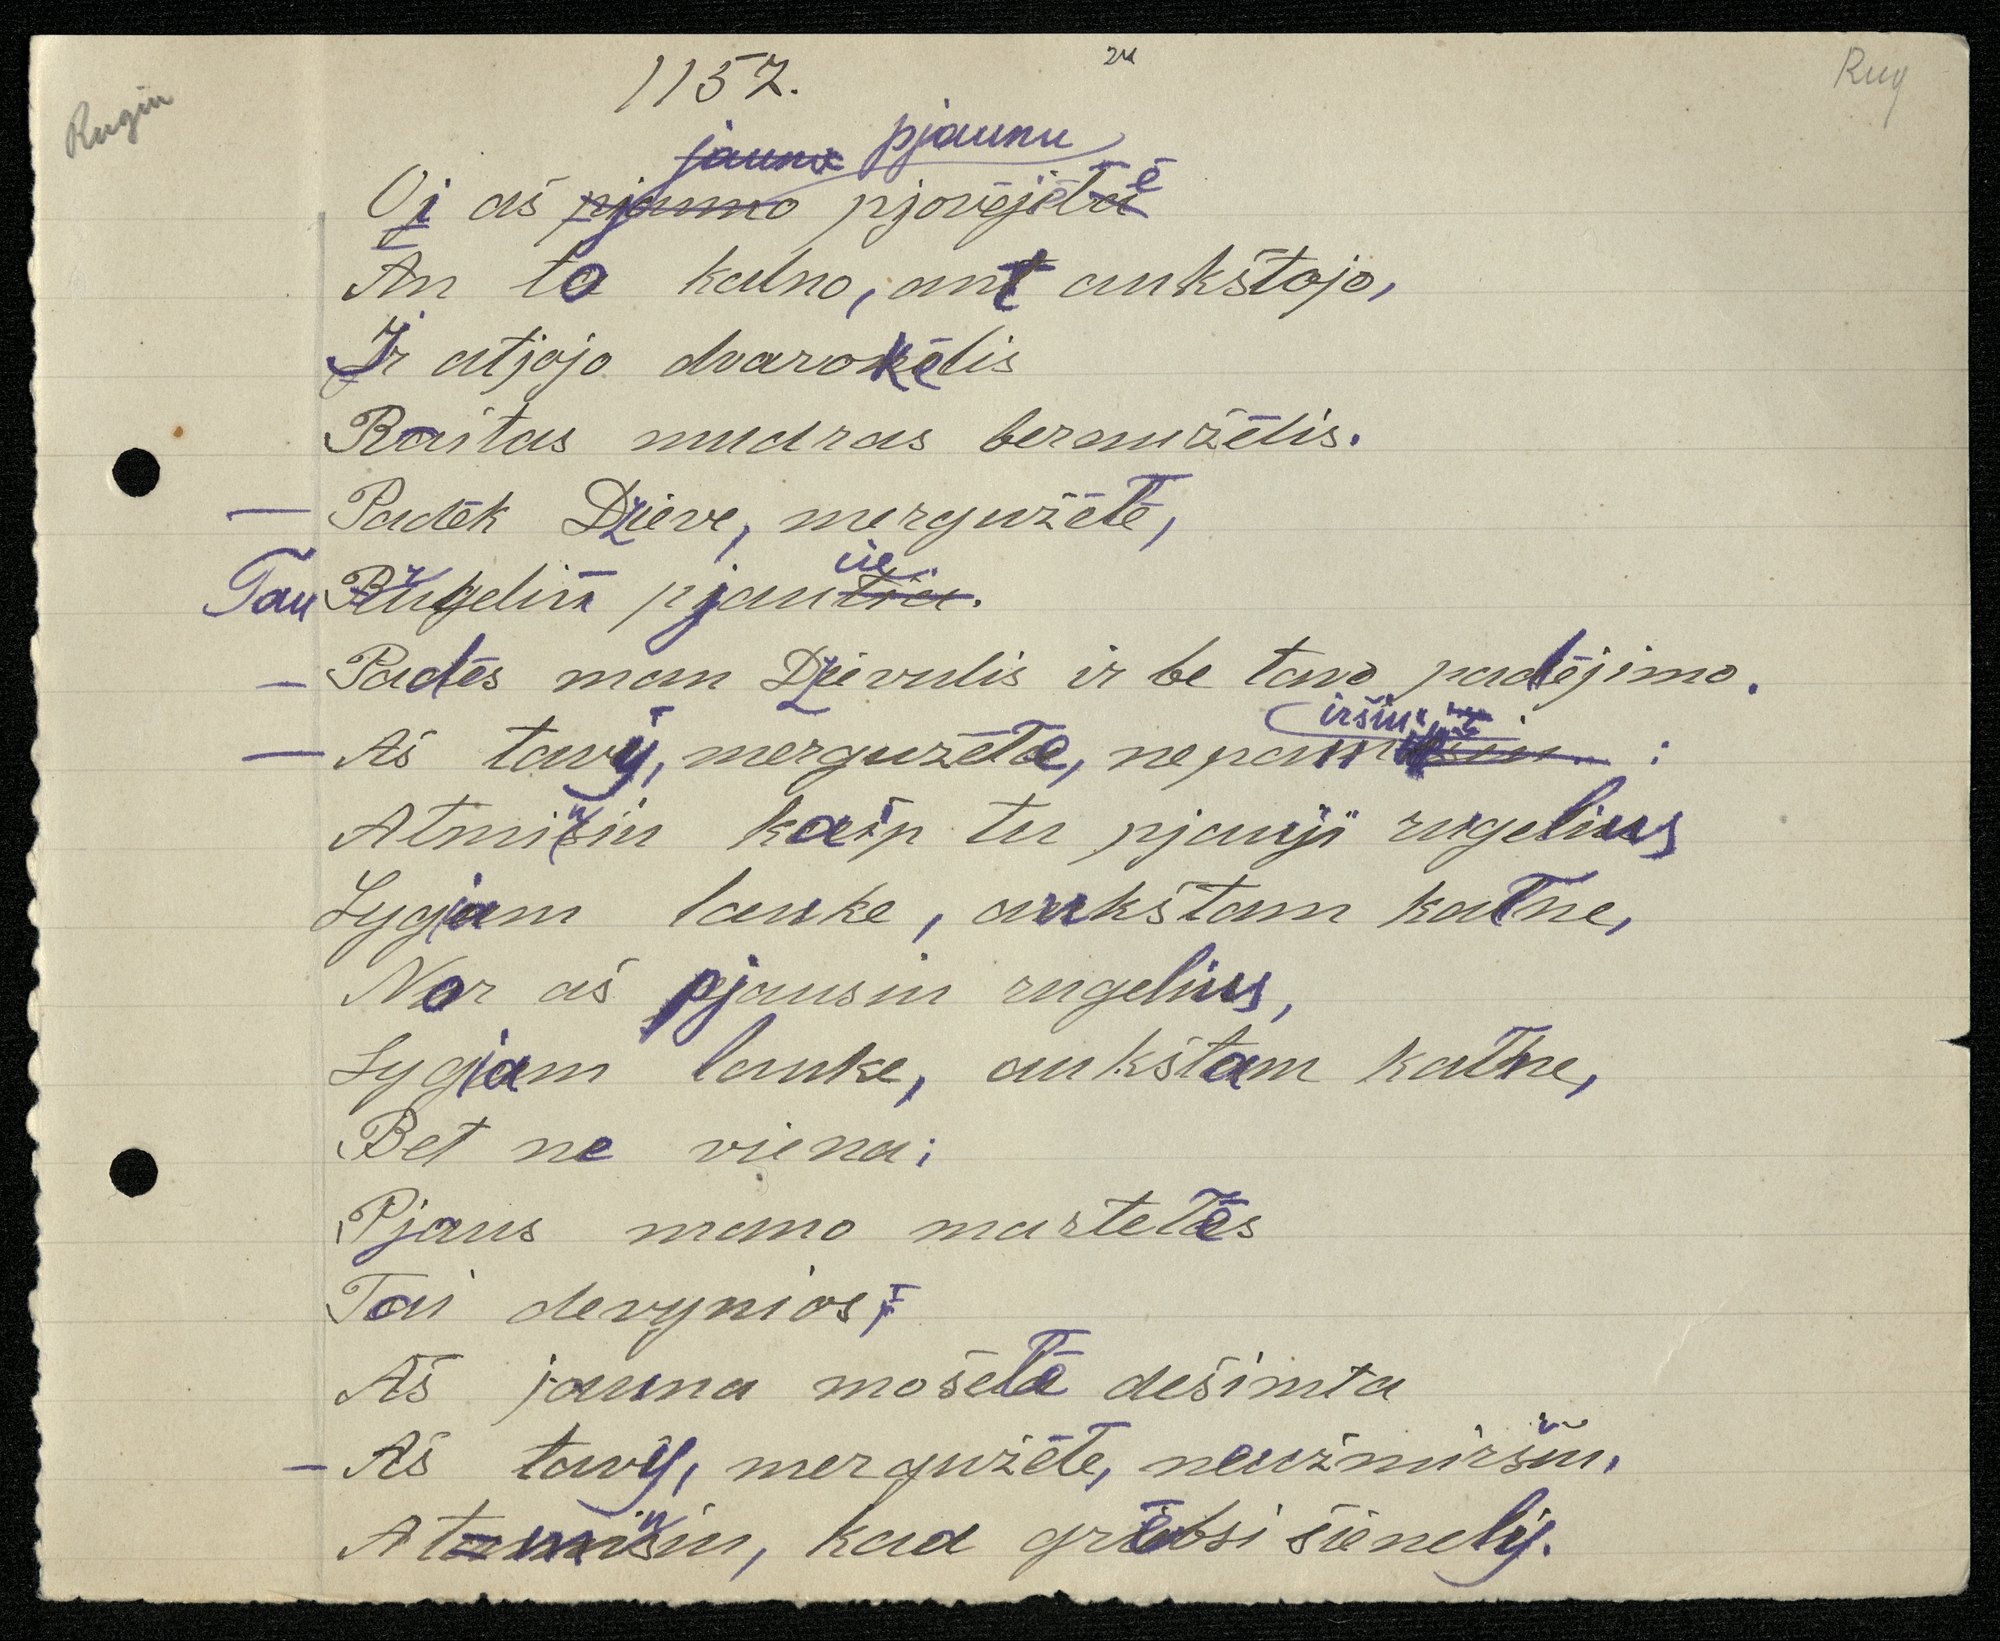 1157.
24
Rug
Rugiu
jauna pjaunu
Oj aš pjauno pjovėjėlaė
An to kalno, ant aukštojo,
Ir atjojo dvarokėlis
Raitas mudras bernužėlis.
— Padėk Dzieve, mergužėlė,
Tau Rugeliu pjautie.
— Padės man Dzievulis ir be tavo padėjimo.
— Aš tavi, mergužėle, nepamiršiu:
Atminsiu kaip tu pjauji rugelius
Lygiam lauke, aukštam kalne,
Nor aš pjausiu rugelius,
Lygiam lauke, aukštam kalne,
Bet ne viena;
Pjaus mano martelės
Tai devynios;
Aš jauna mošelė dešimta
— Aš tavį, mergužėle, neužmiršiu.
Atminsiu, kad grėbsi šienelį.